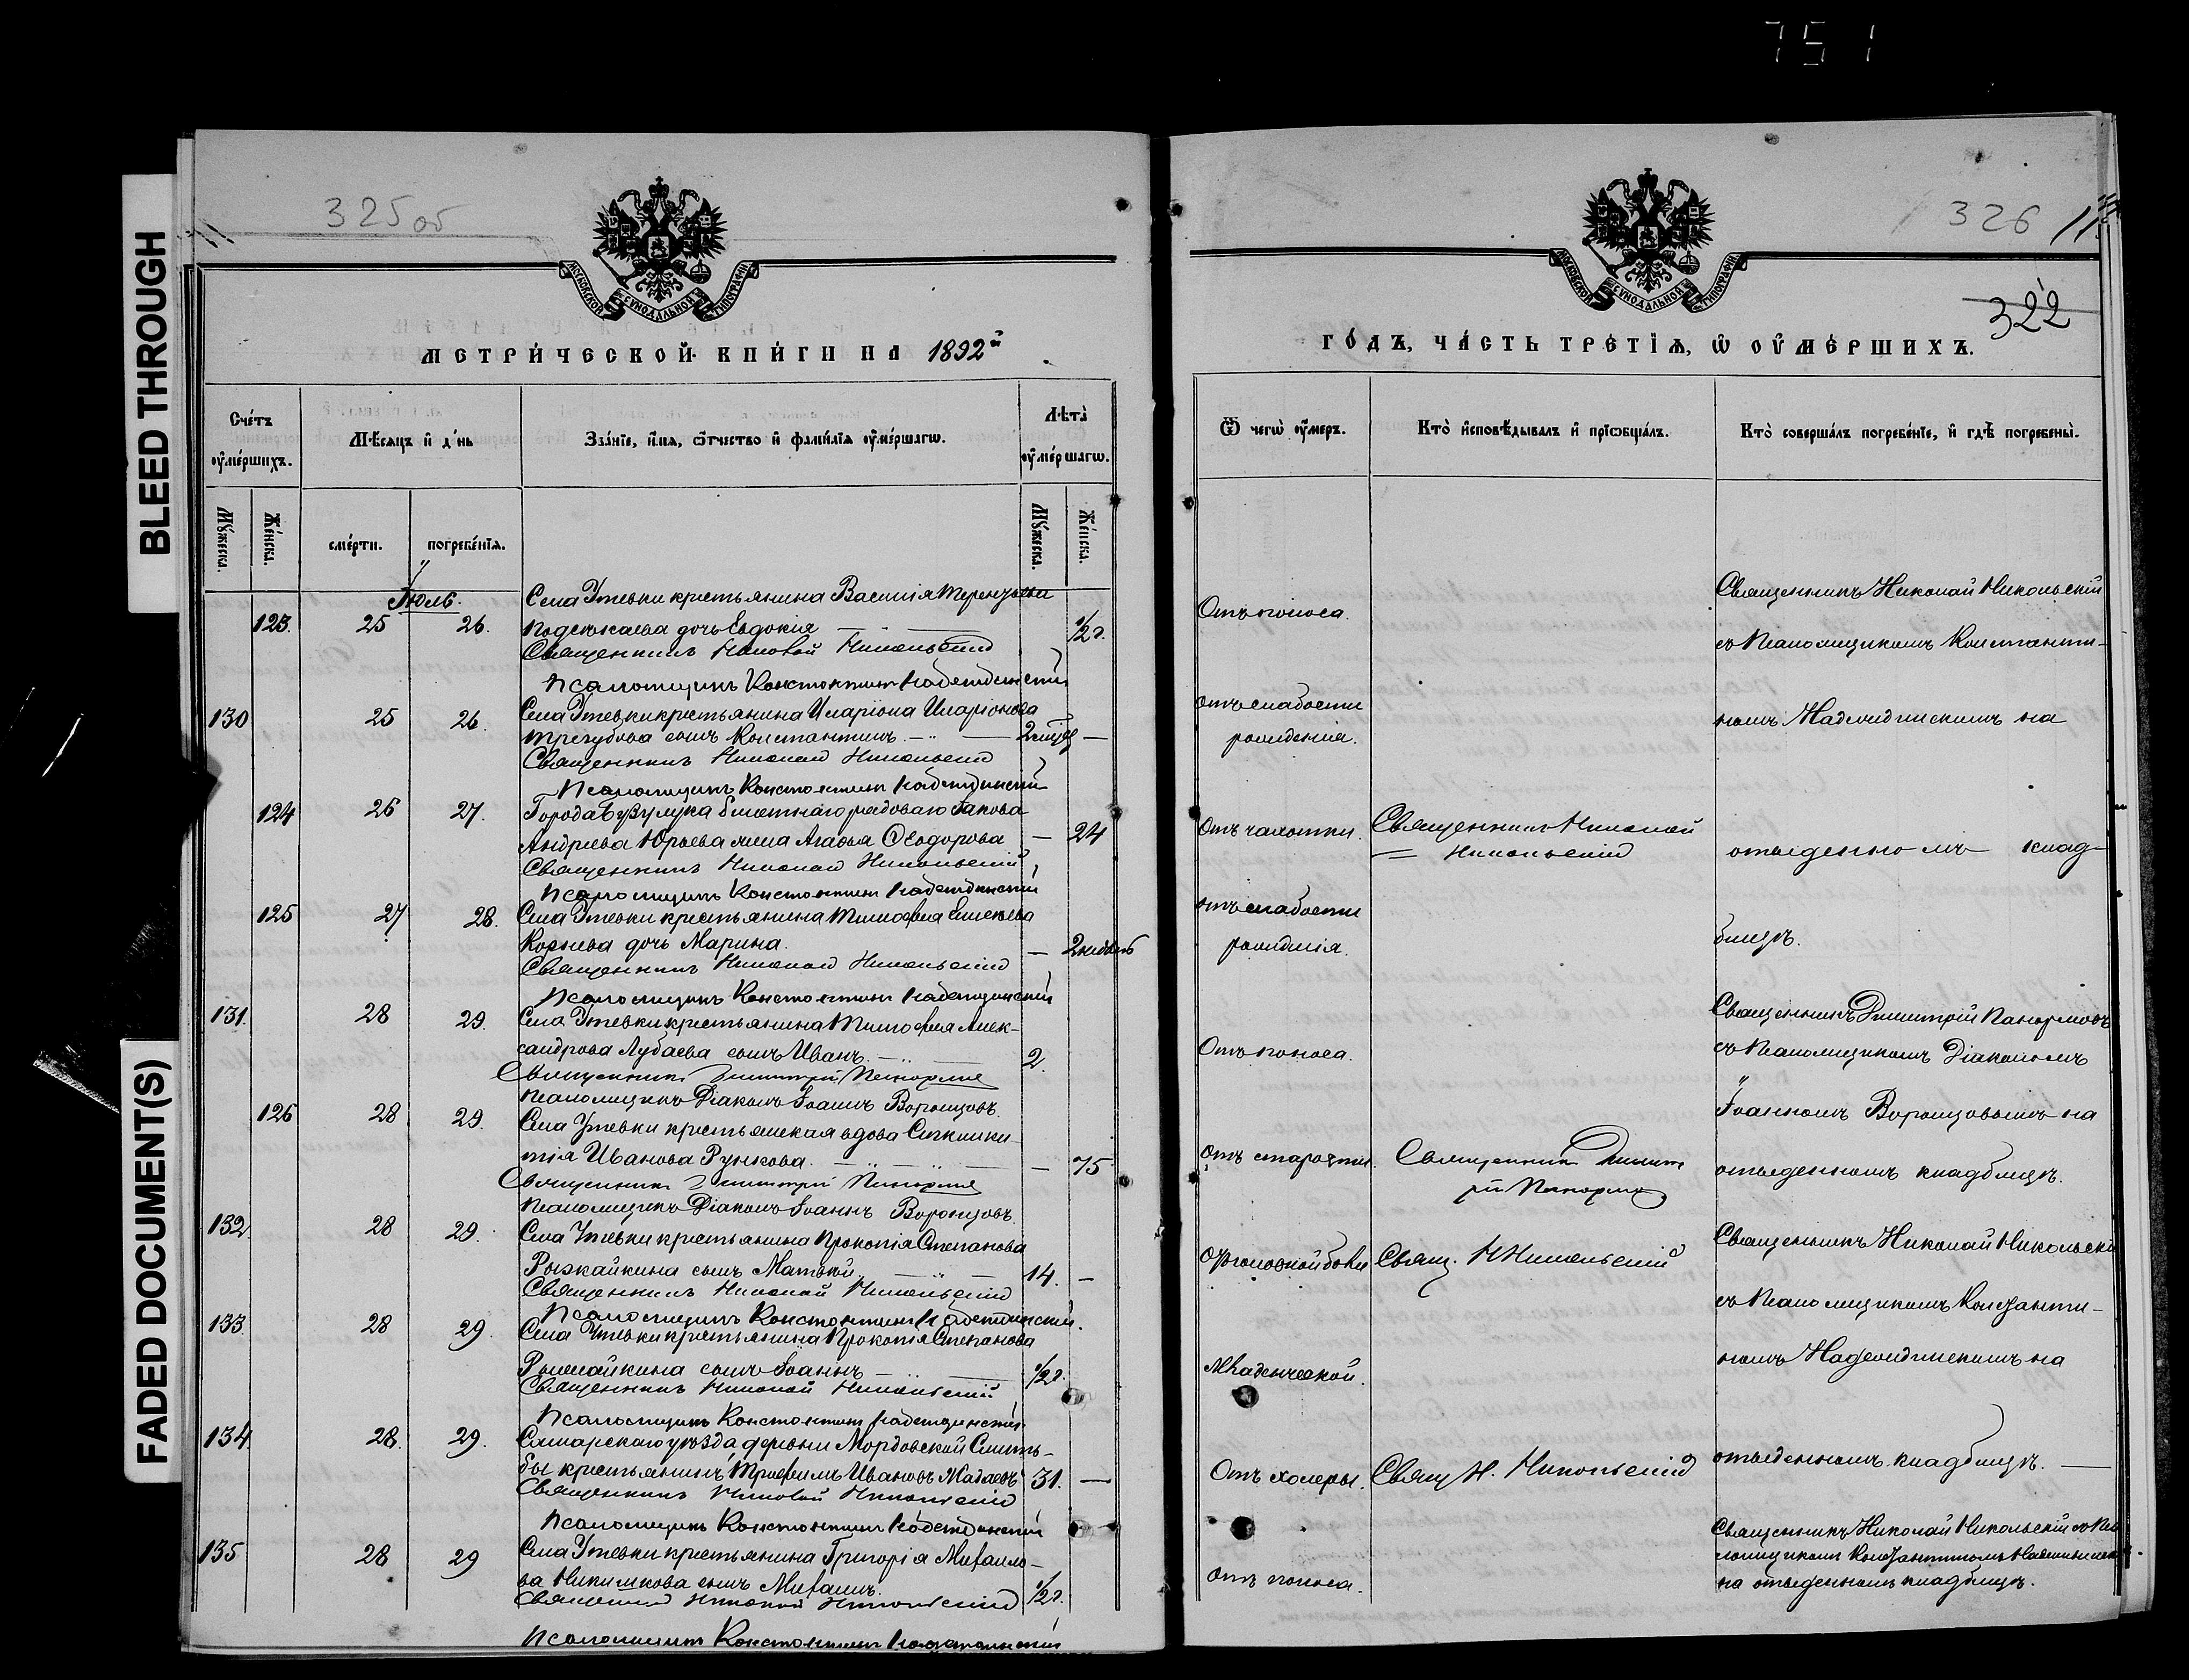 751
BLEED THROUGH
FADED DOCUMENT(S)
325 об
МОСКОВСКОЙ СУНОДАЛЬНОЙ ТИПОГРАФІИ
МЕТРИ́ЧЕСКОЙ КНИ́ГИ НА 1892й
Сче́тъ ᲂу҆ме́ршихъ.
Мѣ́сяцъ и҆ де́нь
Зва́нїе, и҆́мя, ѻ҆́тчество и҆ фами́лїя ᲂу҆ме́ршагѡ.
Лѣ́та ᲂу҆ме́ршагѡ.
Мꙋ́жеска.
Же́нска.
сме́рти.
погребе́нїя.
Мꙋ́жеска.
Же́нска.
Іюль.
Села Утевки крестьянина Василія Терентьева
123. 25 26. дочь Евдокия 1/2 г.
Священникъ Николай Никольский
Псаломщикъ Константин Надеждинский
130 25 26. Села Утевки крестьянина Иларіона Иларіонова
Трегубова сынъ Константинъ. — 2 —
Священникъ Николай Никольский
Псаломщикъ Константин Надеждинский
124 26 27. Города Бузулука билетнаго рядоваго Іакова
Андреева Юрьева жена Агафья Ѳеодорова — 24
Священникъ Николай Никольский
Псаломщикъ Константин Надеждинский
125 27 28. Села Утевки крестьянина Тимофея
Корнева дочь Марина. — 2
Священникъ Николай Никольский
Псаломщикъ Константин Надеждинский
131. 28 29. Села Утевки крестьянина Тимофея Алек-
сандрова Лубаева сынъ Иванъ. — 2.
Священникъ Димитрий Панормов
Псаломщикъ Діаконъ Іоаннъ Воронцовъ.
126 28 29. Села Утевки крестьянская вдова Синкли-
тія Иванова Рункова. — 75
Священникъ Димитрий Панормов
Псаломщикъ Діаконъ Іоаннъ Воронцовъ.
132. 28 29. Села Утевки крестьянина Прокопія Степанова
Рыжайкина сынъ Матвѣй — 14. —
Священникъ Николай Никольский
Псаломщикъ Константин Надеждинский.
133. 28 29. Села Утевки крестьянина Прокопія Степанова
Рыжайкина сынъ Іоаннъ — 1/2 г.
Священникъ Николай Никольский
Псаломщикъ Константин Надеждинский
134. 28. 29. Самарскаго уѣзда деревни Мордовской Селить-
бы крестьянинъ Трифилъ Ивановъ Мадаевъ 31. —
Священникъ Николай Никольский
Псаломщикъ Константин Надеждинский
135 28 29 Села Утевки крестьянина Григорія Михайло-
ва Никишкова сынъ Михаилъ. 1/2 г.
Священник Николай Никольский
Псаломщикъ Константин Надеждинский
326
322
МОСКОВСКОЙ СУНОДАЛЬНОЙ ТИПОГРАФІИ
ГО́ДЪ, ЧА́СТЬ ТРЕ́ТІѦ, Ѡ ОУМЕ́РШИХЪ.
Ѿ чегѡ̀ ᲂу҆́меръ.
Кто̀ и҆сповѣ́дывалъ и҆ прїѡбща́лъ.
Кто̀ соверша́лъ погребе́нїе, и҆ гдѣ̀ погребены̀.
Отъ поноса.
Священникъ Николай Никольскій
съ Псаломщикомъ Константи-
Отъ слабости
рожденія.
номъ Надеждинскимъ на
Отъ чахотки.
Священникъ Николай
Никольский
отведенномъ клад-
Отъ слабости
рожденія.
бищѣ.
Отъ поноса.
Священникъ Димитрій Панормовъ
съ Псаломщикомъ Діакономъ
Іоанномъ Воронцовымъ на
Отъ старости.
Священник Димит
рій Панормов
отведенномъ кладбищѣ.
Отъ головной боли
Свящ. Н Никольский
Священникъ Николай Никольскій
съ Псаломщикомъ Константи-
Младенческой.
номъ Надеждинскимъ на
Отъ холеры.
Свящ Н. Никольский
отведенномъ кладбищѣ. —
Отъ поноса.
Священникъ Николай Никольскій съ Пса
ломщикомъ Константиномъ Надеждинским
на отведенномъ кладбищѣ.